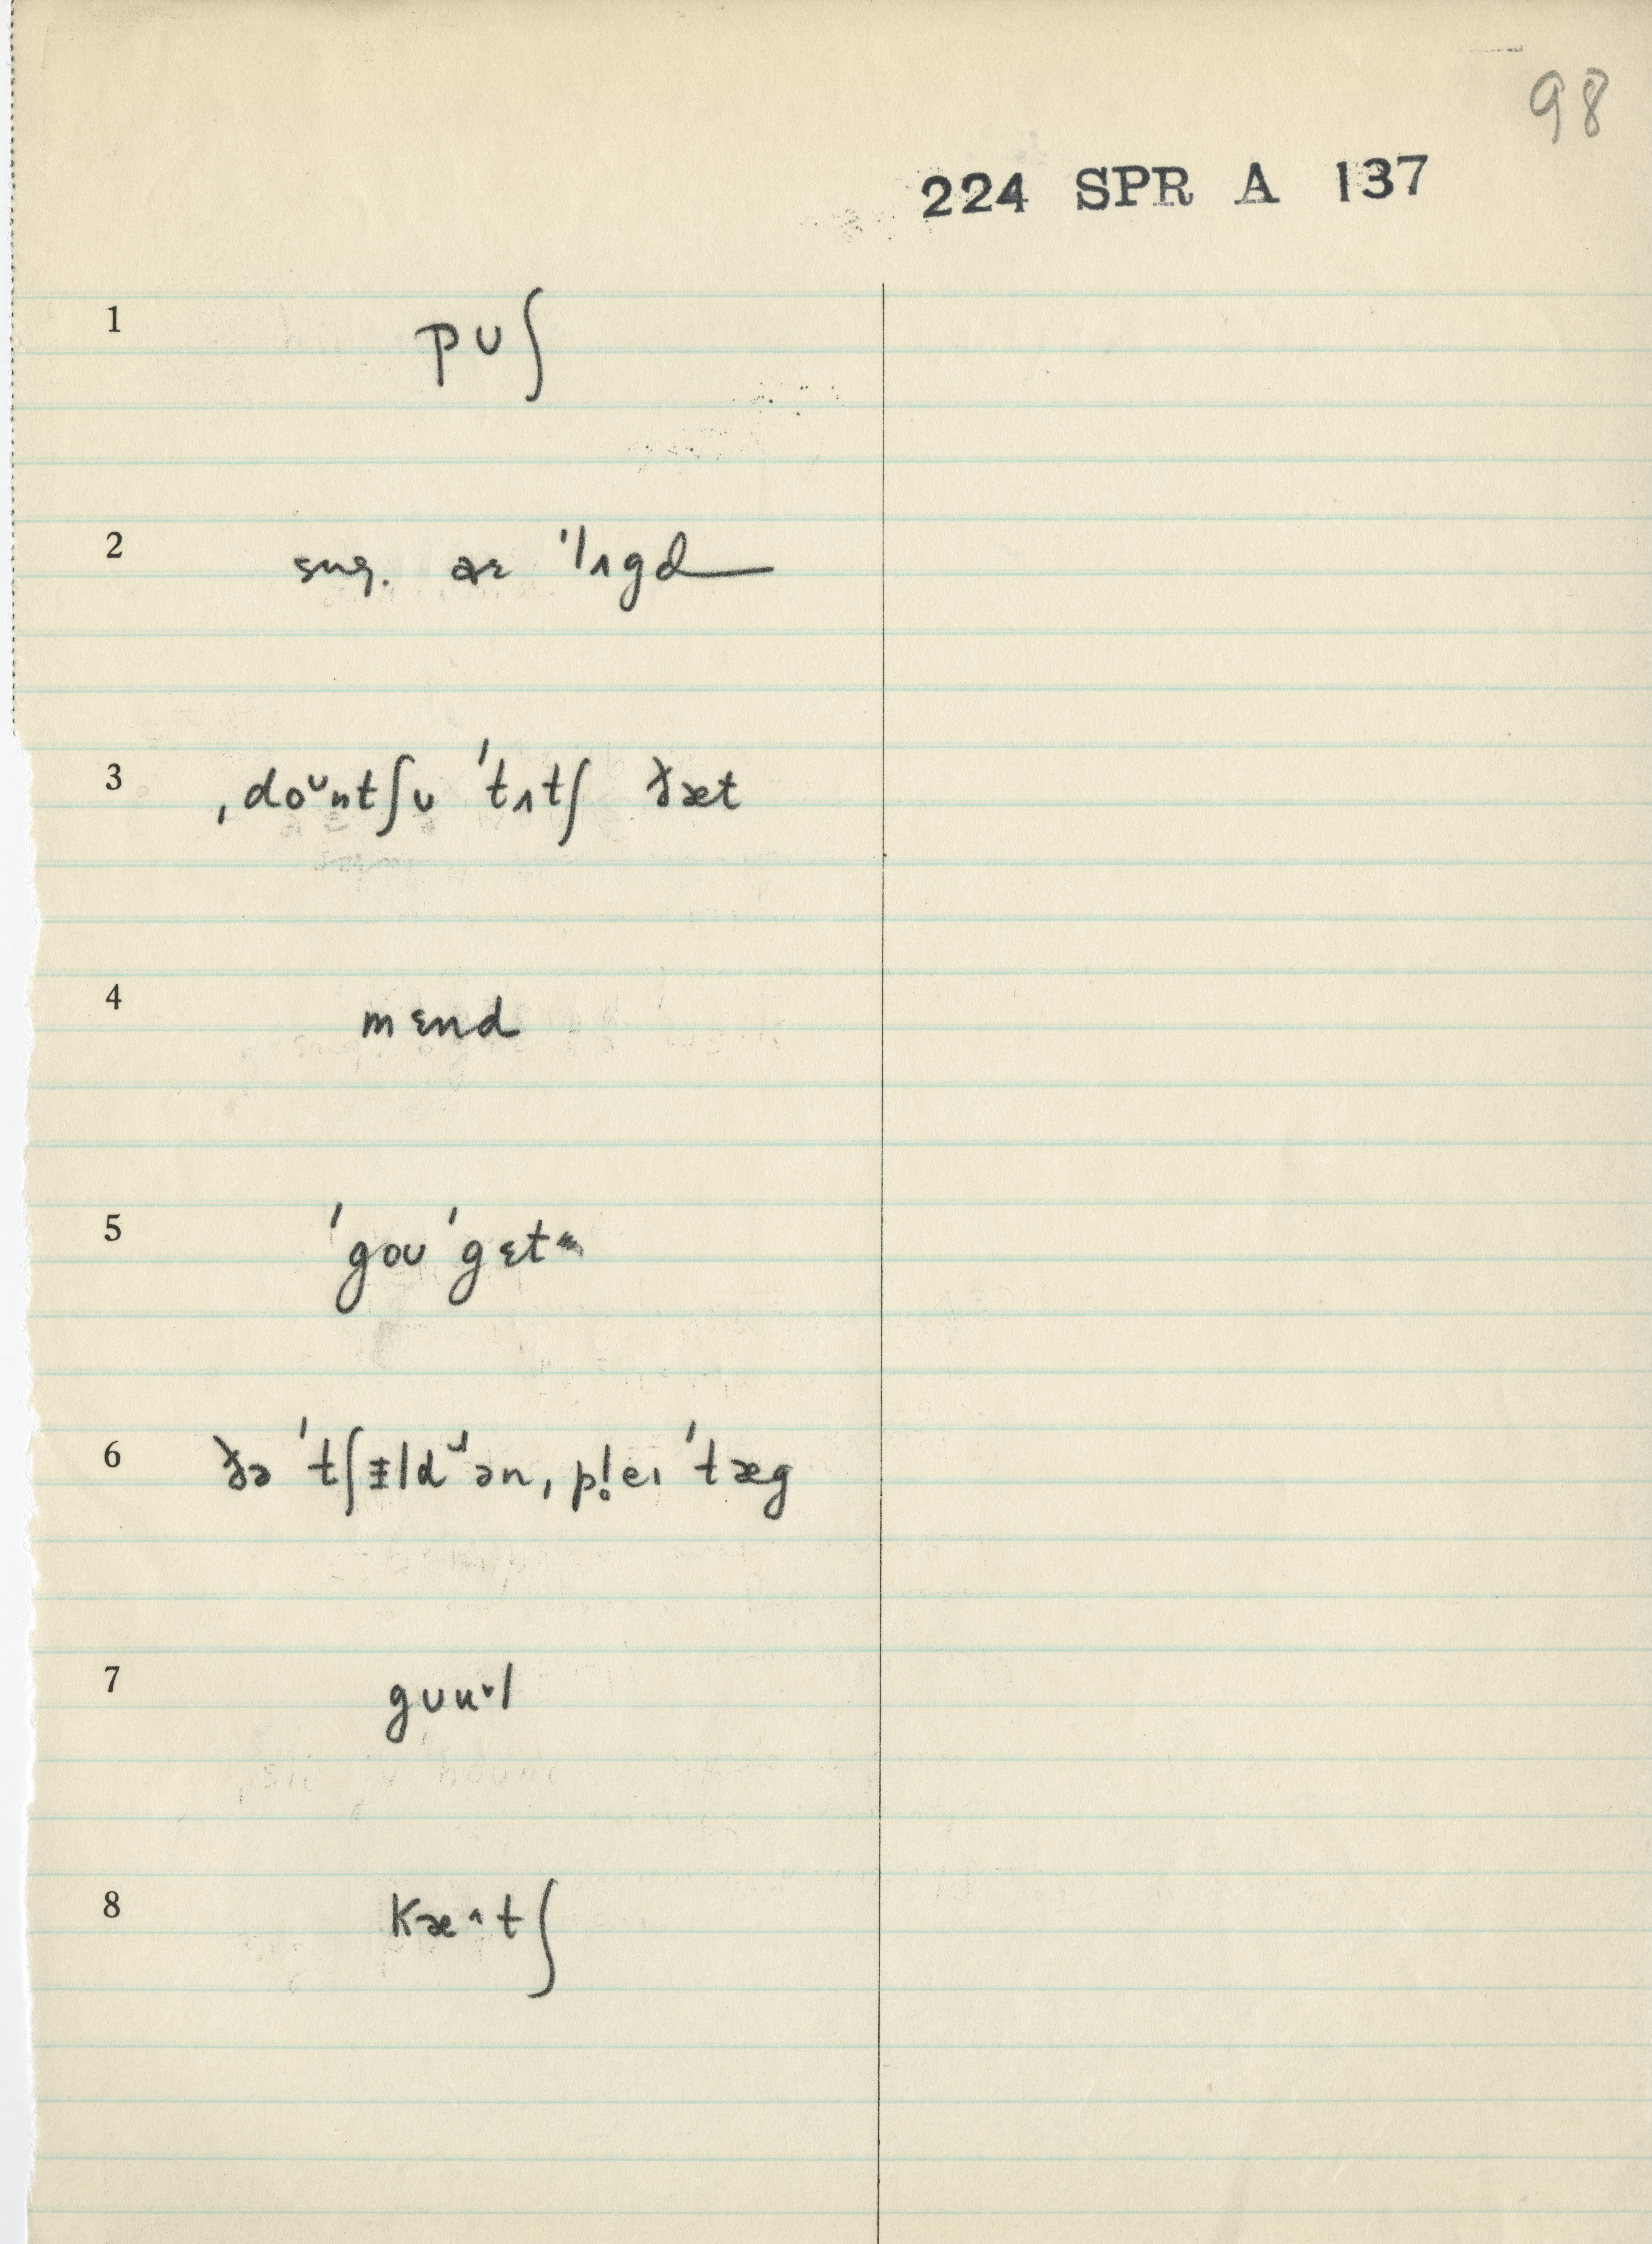 98
224 SPR A 137
1 pʊʃ
2 sug. ær ˈlʌgd
3 ˌdoᶷntʃʊ ˈtʌtʃ ðæt
4 mɛnd
5 ˈgoʊ ˈgɛt
6 ðə ˈtʃɪld ən ˌpl̥eɪ ˈtæg
7
8 kæ^tʃ